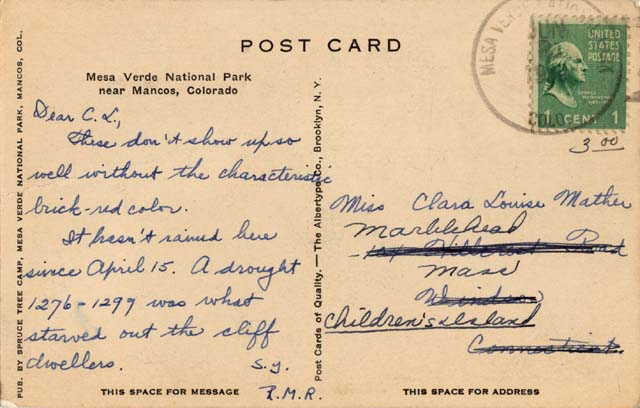 POST CARD
Mesa Verde National Park
near Mancos, Colorado
Dear C.L.,
These don't show up so
well without the characteristic
brick-red color.
It hasn't rained here
since April 15. A drought
1276-1299 was what
starved out the cliff
dwellers.
S.Y.
R.M.R.
THIS SPACE FOR MESSAGE
PUB. BY SPRUCE TREE CAMP, MESA VERDE NATIONAL PARK, MANCOS, COL.
Post Cards of Quality. — The Albertype Co., Brooklyn, N. Y.
MESA VERDE NATIONAL
JUN
19
COLO.
UNITED
STATES
POSTAGE
1 CENT 1
3.00
Miss Clara Louise Mather
Marblehead
Hillcrest Road
Mass
Windsor
Children's Island
Connecticut.
THIS SPACE FOR ADDRESS